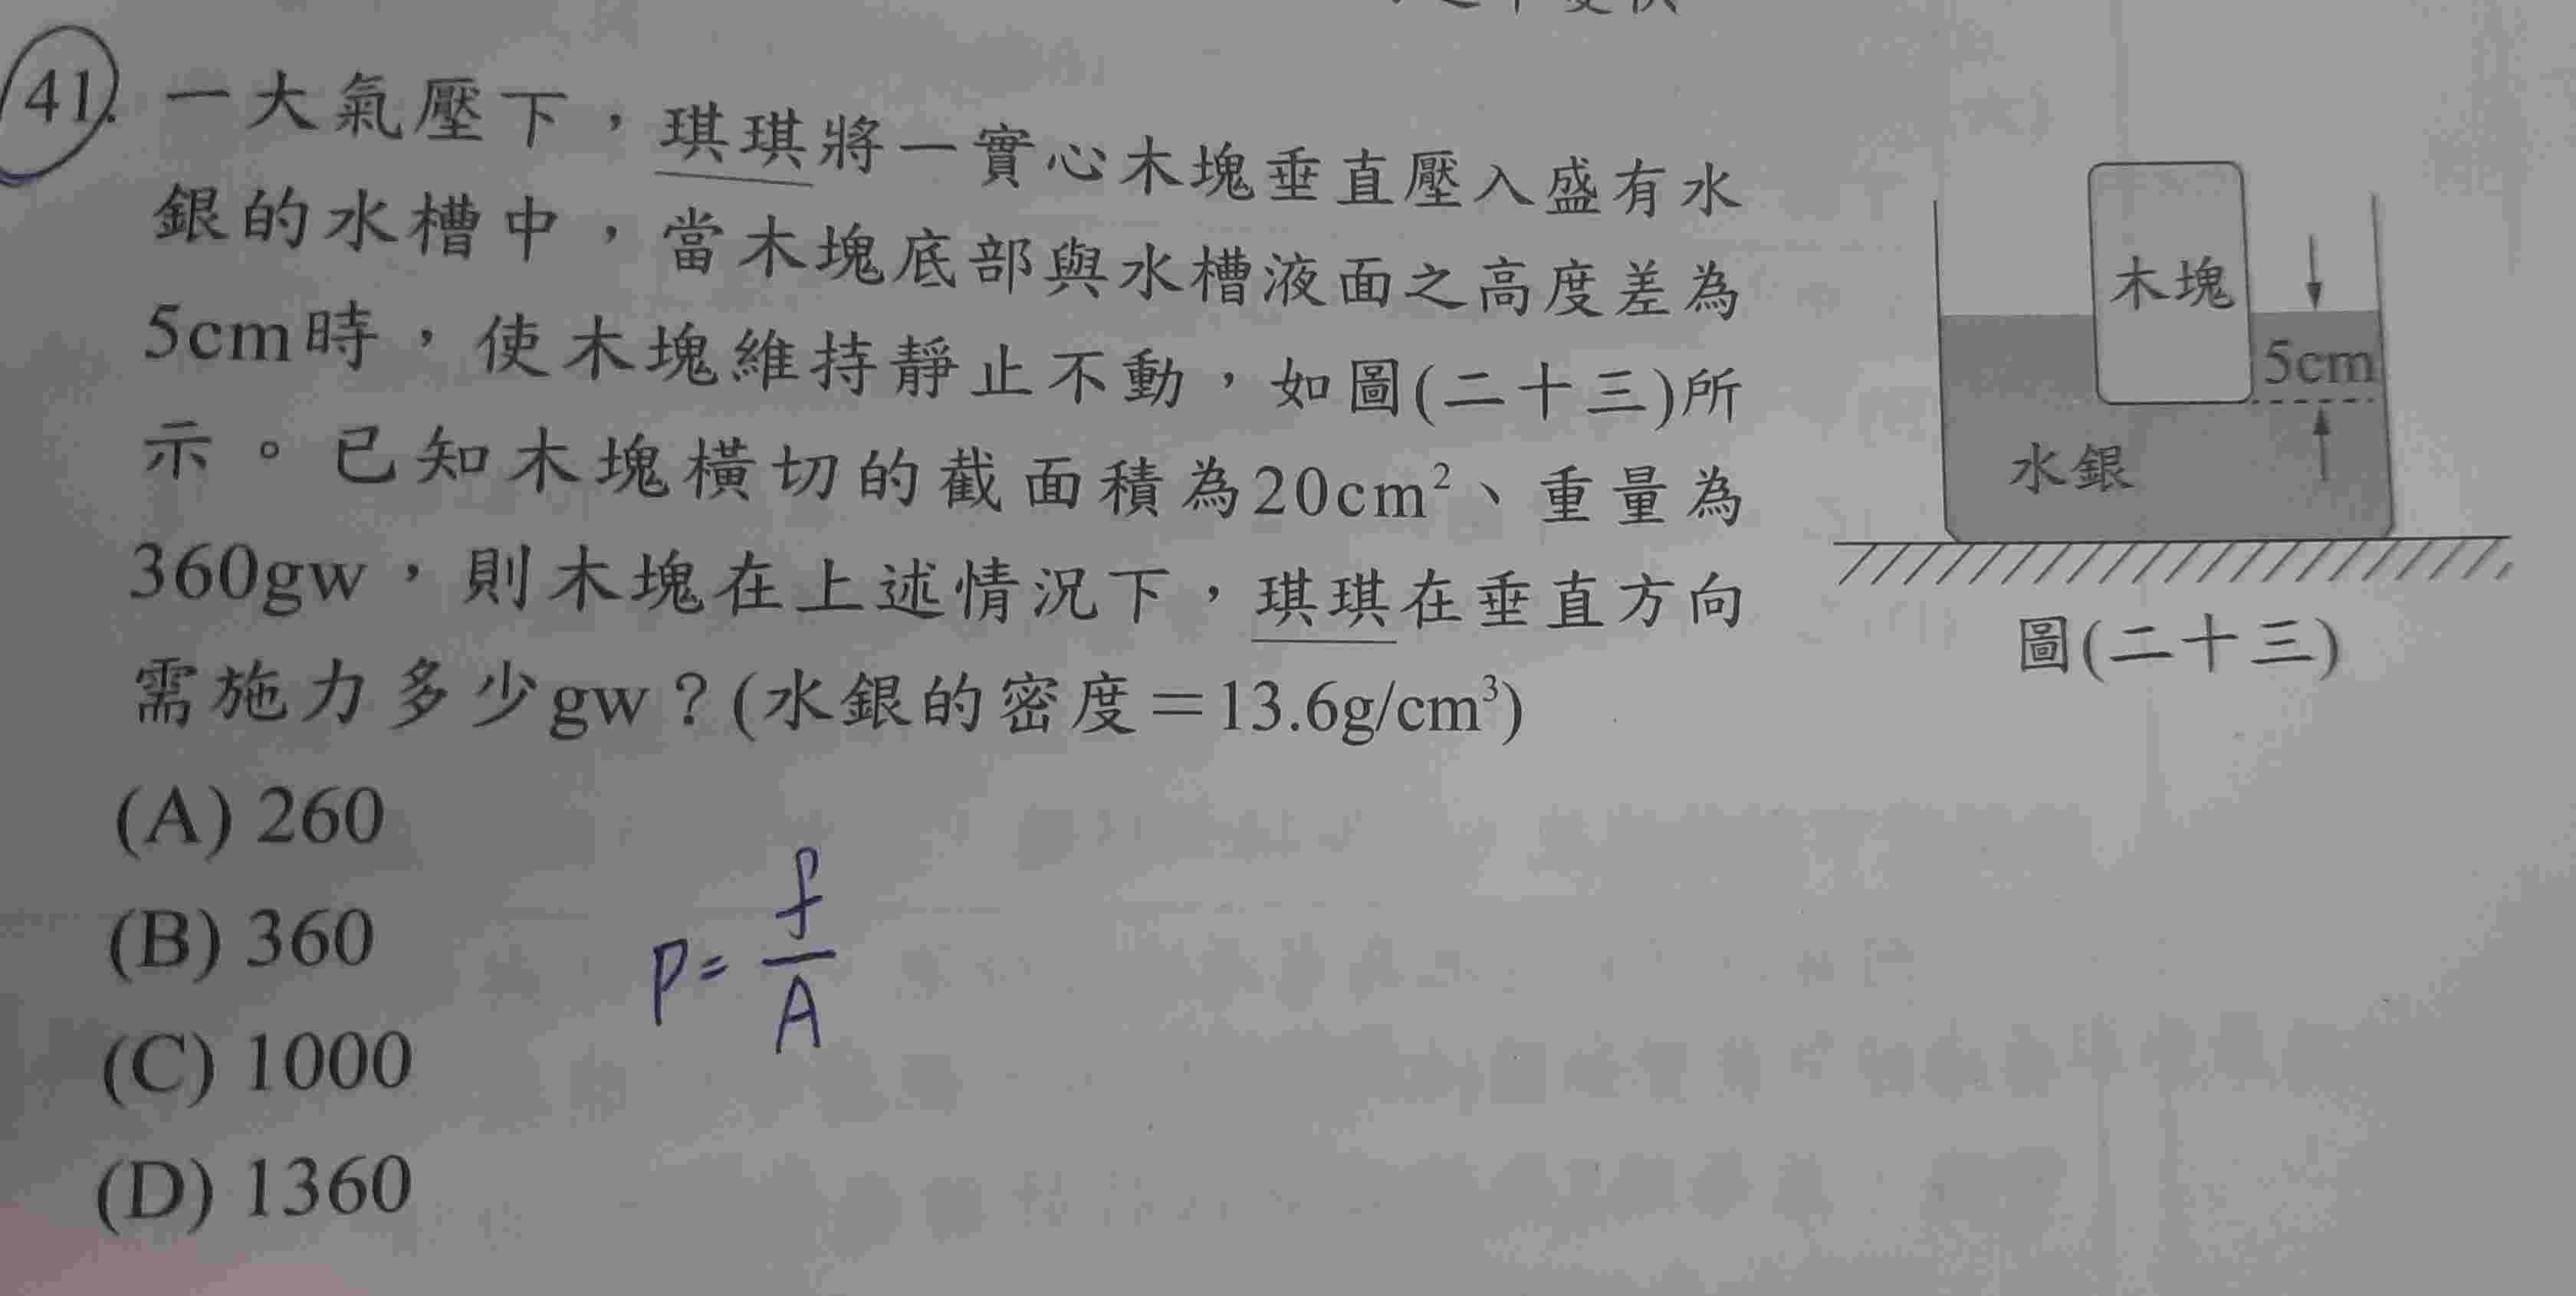 41. 一大氣壓下，琪琪將一實心木塊垂直壓入盛有水
銀的水槽中，當木塊底部與水槽液面之高度差為
5cm時，使木塊維持靜止不動，如圖(二十三)所
示。已知木塊橫切的截面積為20cm²、重量為
360gw，則木塊在上述情況下，琪琪在垂直方向
需施力多少gw？(水銀的密度＝13.6g/cm³)
(A) 260
(B) 360
(C) 1000
(D) 1360
P = f/A
木塊
5cm
水銀
圖(二十三)